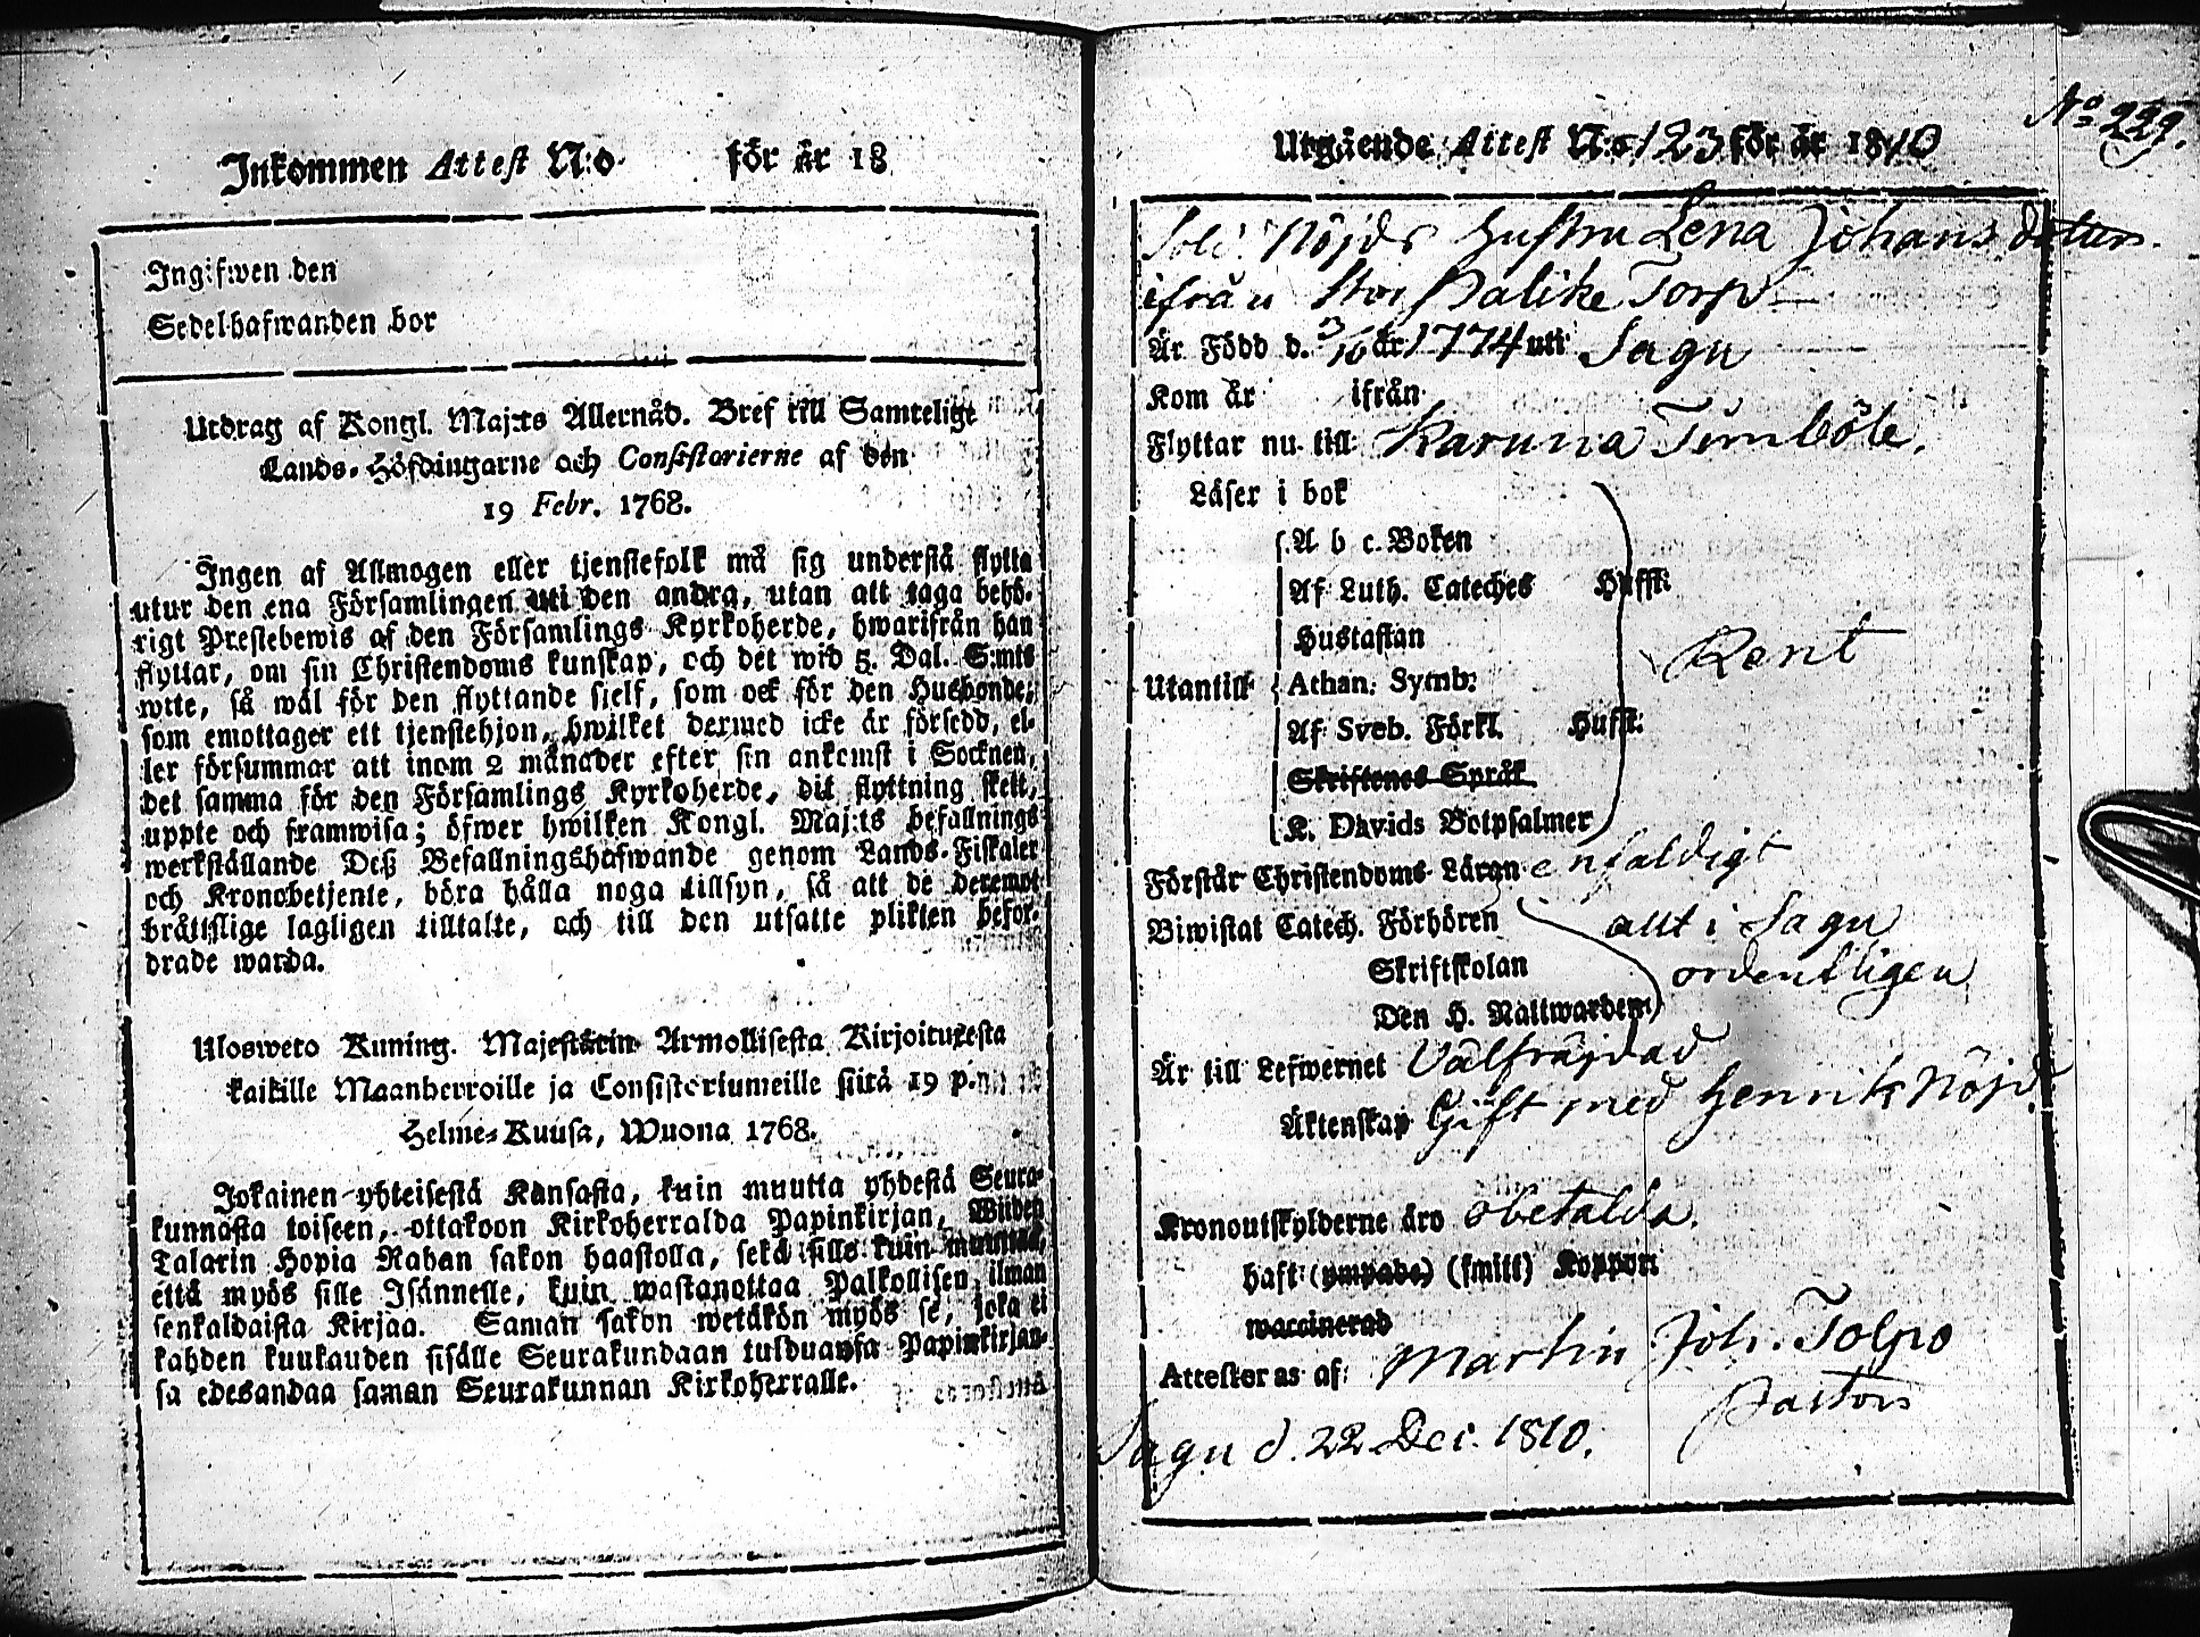 Inkommen Attest N:o för år 18
Ingifwen den
Sedelhafwanden bor
Utdrag af Kongl. Maj:ts Allernåd. Bref till Samtelige
Lands-Höfdingarne och Consistorierne af den
19 Febr. 1768.
Ingen af Allmogen eller tjenstefolk må sig understå flytta
utur den ena Församlingen uti den andra, utan att taga behö-
rigt Prestebewis af den Församlings Kyrkoherde, hwarifrån han
flyttar, om sin Christendoms kunskap, och det wid 5. Dal. S:mts
wite, så wäl för den flyttande sielf, som ock för den Husbonde,
som emottager ett tjenstehjon, hwilket dermed icke är försedd, el-
ler försummar att inom 2 månader efter sin ankomst i Socknen,
det samma för den Församlings Kyrkoherde, dit flyttning skett,
uppte och framwisa; öfwer hwilken Kongl. Maj:ts befallnings
werkställande Deß Befallningshafwande genom Lands-Fiskaler
och Kronobetjente, böra hålla noga tillsyn, så att de deremot
bråttslige lagligen tilltalte, och till den utsatte plikten befor-
drade warda.
Ulosweto Kuning. Majestätin Armollisesta Kirjoituxesta
kaikille Maanherroille ja Consistoriumeille siitä 19 p.
Helme-Kuusa, Wuona 1768.
Jokainen yhteisestä Kansasta, kuin muutta yhdestä Seura-
kunnasta toiseen, ottakoon Kirkoherralda Papinkirjan, Wiiden
Talarin Hopia Rahan sakon haastolla, sekä sille kuin muuttaa,
että myös sille Isännelle, kuin wastanottaa Palkollisen ilman
senkaldaista Kirjaa. Saman sakon wetäkön myös se, joka ei
kahden kuukauden sisälle Seurakundaan tulduansa Papinkirjan-
sa edesandaa saman Seurakunnan Kirkoherralle.
No 229.
Utgående Attest N:o 123 för år 1810
Sold. Nöjds hustru Lena Johans dotter
ifrån Stor Palike Torp
Är Född d. 3/10 år 1774 uti Sagu
Kom år ifrån
Flyttar nu till Karuna Timböle.
Läser i bok
A b c. Boken
Af Luth. Cateches Husst:
Hustaflan
Rent
Utantill Athan. Symb:
Af Sveb. Förkl. Husst:
Skriftenes Språk
K. Davids Botpsalmer
Förstår Christendoms Läran enfaldigt
Biwistat Catech. Förhören allt i Sagu
Skriftskolan ordentligen
Den H. Nattwarden
Är till Lefwernet Välfräjdad
Äktenskap Gift med Henrik Nöjd.
Kronoutskylderne äro obetalda.
haft (ympade) (smitt) Koppor:
waccinerad
Attesteras af: Martin Joh. Tolpo
Pastor
Sagu d. 22 Dec. 1810.